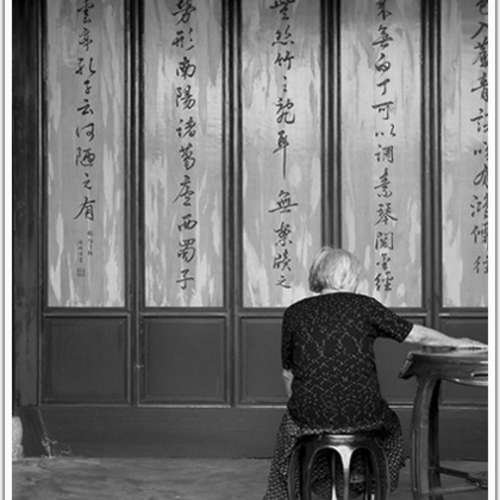 色入簾青談笑有鴻儒往
來無白丁可以調素琴閱金經
無絲竹之亂耳無案牘之
勞形南陽諸葛廬西蜀子
雲亭孔子云何陋之有